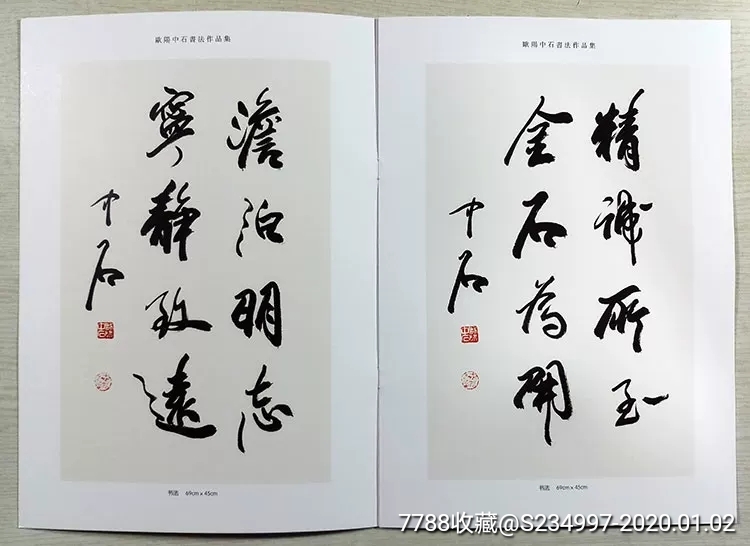 歐陽中石書法作品集
澹泊明志
寧靜致遠
中石
书法 69cm x 45cm
歐陽中石書法作品集
精誠所至
金石為開
中石
书法 69cm x 45cm
7788收藏@S234997-2020.01.02